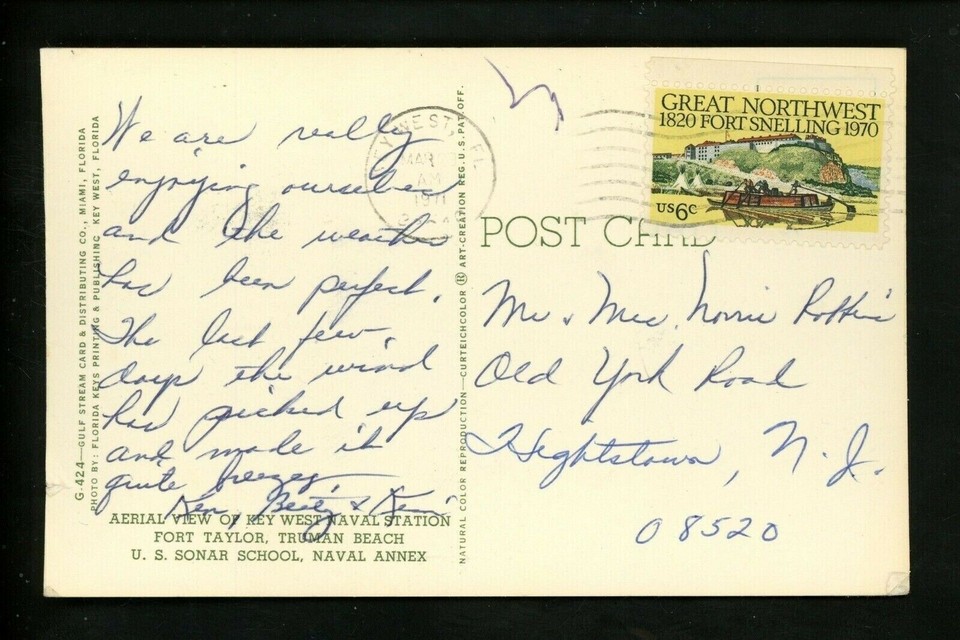 We are really
enjoying ourselves
and the weather
has been perfect.
The last few
days the wind
has picked up
and made it
quite breezy.
Ken, Betty &
AERIAL VIEW OF KEY WEST NAVAL STATION
FORT TAYLOR, TRUMAN BEACH
U. S. SONAR SCHOOL, NAVAL ANNEX
G-424—GULF STREAM CARD & DISTRIBUTING CO., MIAMI, FLORIDA
PHOTO BY: FLORIDA KEYS PRINTING & PUBLISHING, KEY WEST, FLORIDA
NATURAL COLOR REPRODUCTION—CURTEICHCOLOR ® ART-CREATION REG. U.S. PAT. OFF.
KEY WEST, FL
MAR
AM
1971
GREAT NORTHWEST
1820 FORT SNELLING 1970
US 6c
POST CARD
Mr. & Mrs. Norris Robbins
Old York Road
Hightstown, N. J.
08520